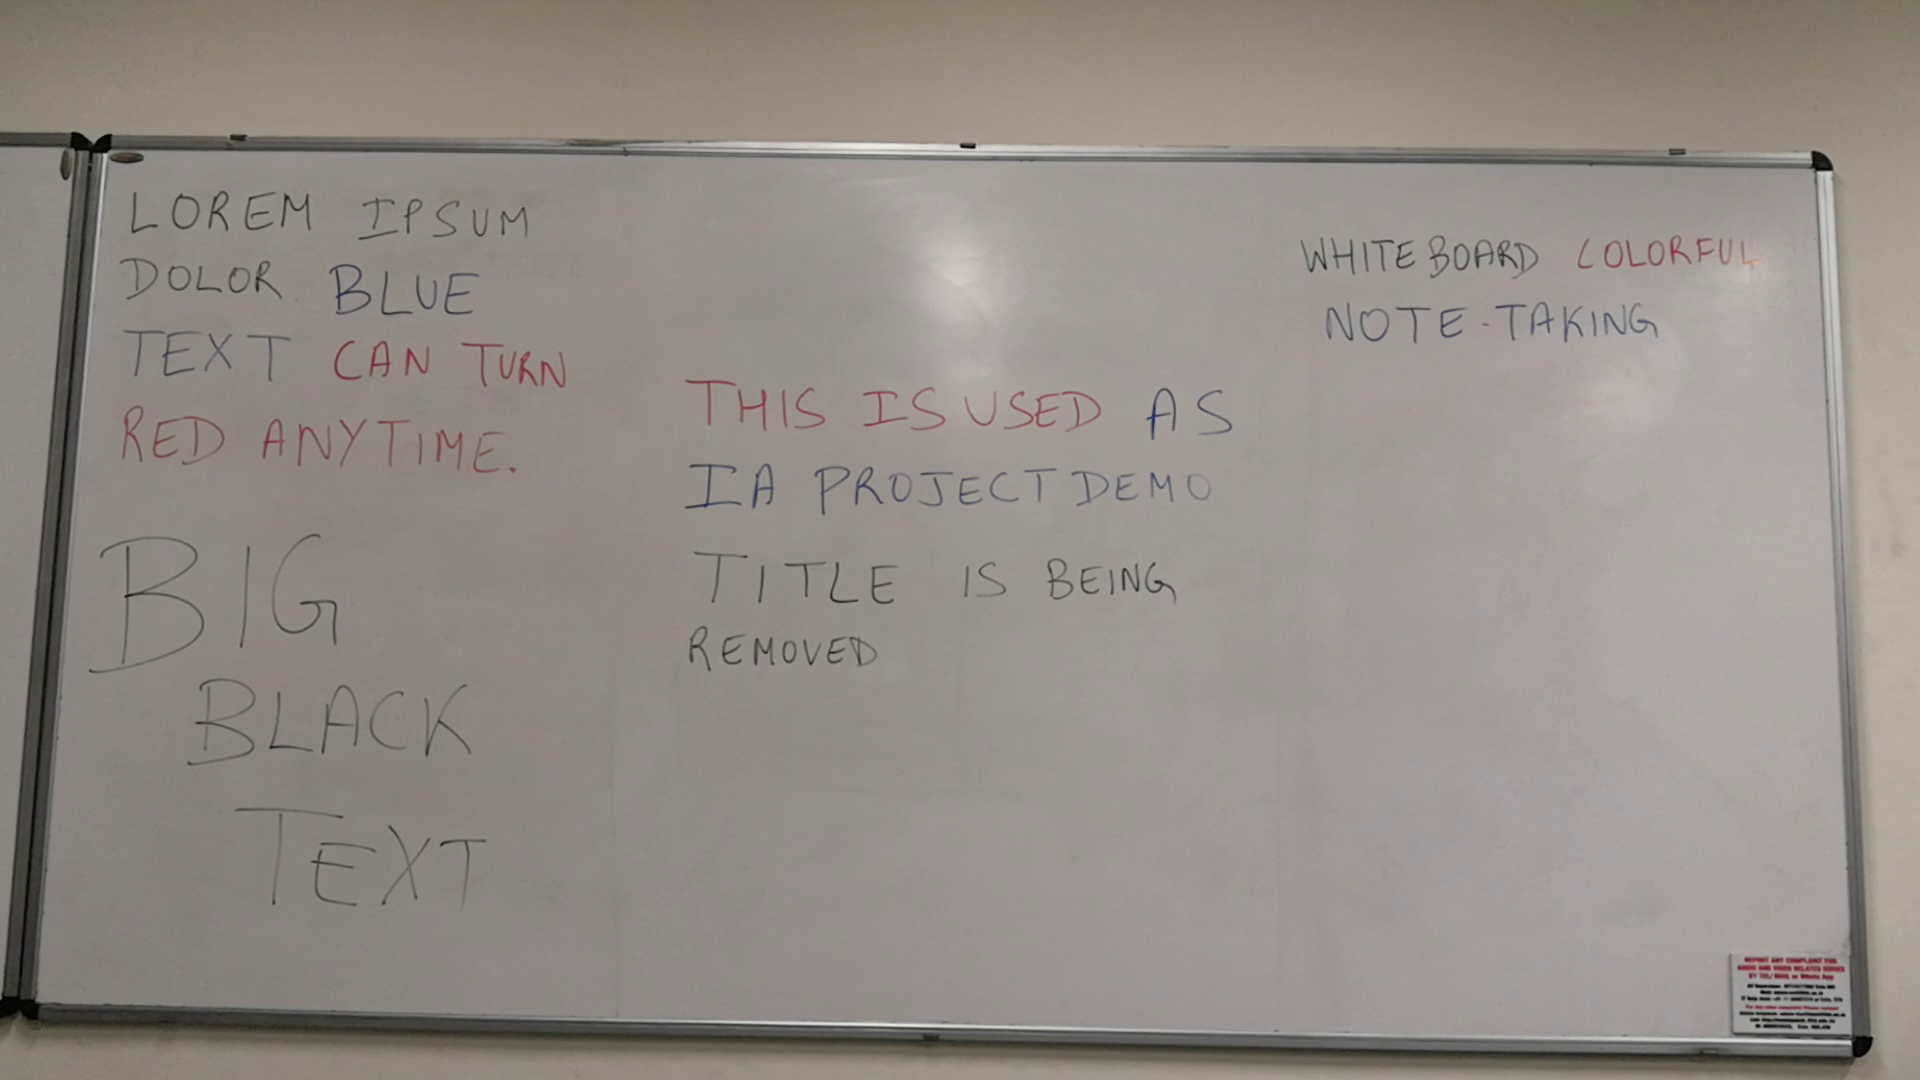 LOREM IPSUM
DOLOR BLUE
TEXT CAN TURN
RED ANYTIME.
BIG
BLACK
TEXT
THIS IS USED AS
IA PROJECT DEMO
TITLE IS BEING
REMOVED
WHITEBOARD COLORFUL
NOTE-TAKING
REPORT ANY COMPLAINT FOR
AUDIO AND VIDEO RELATED ISSUES